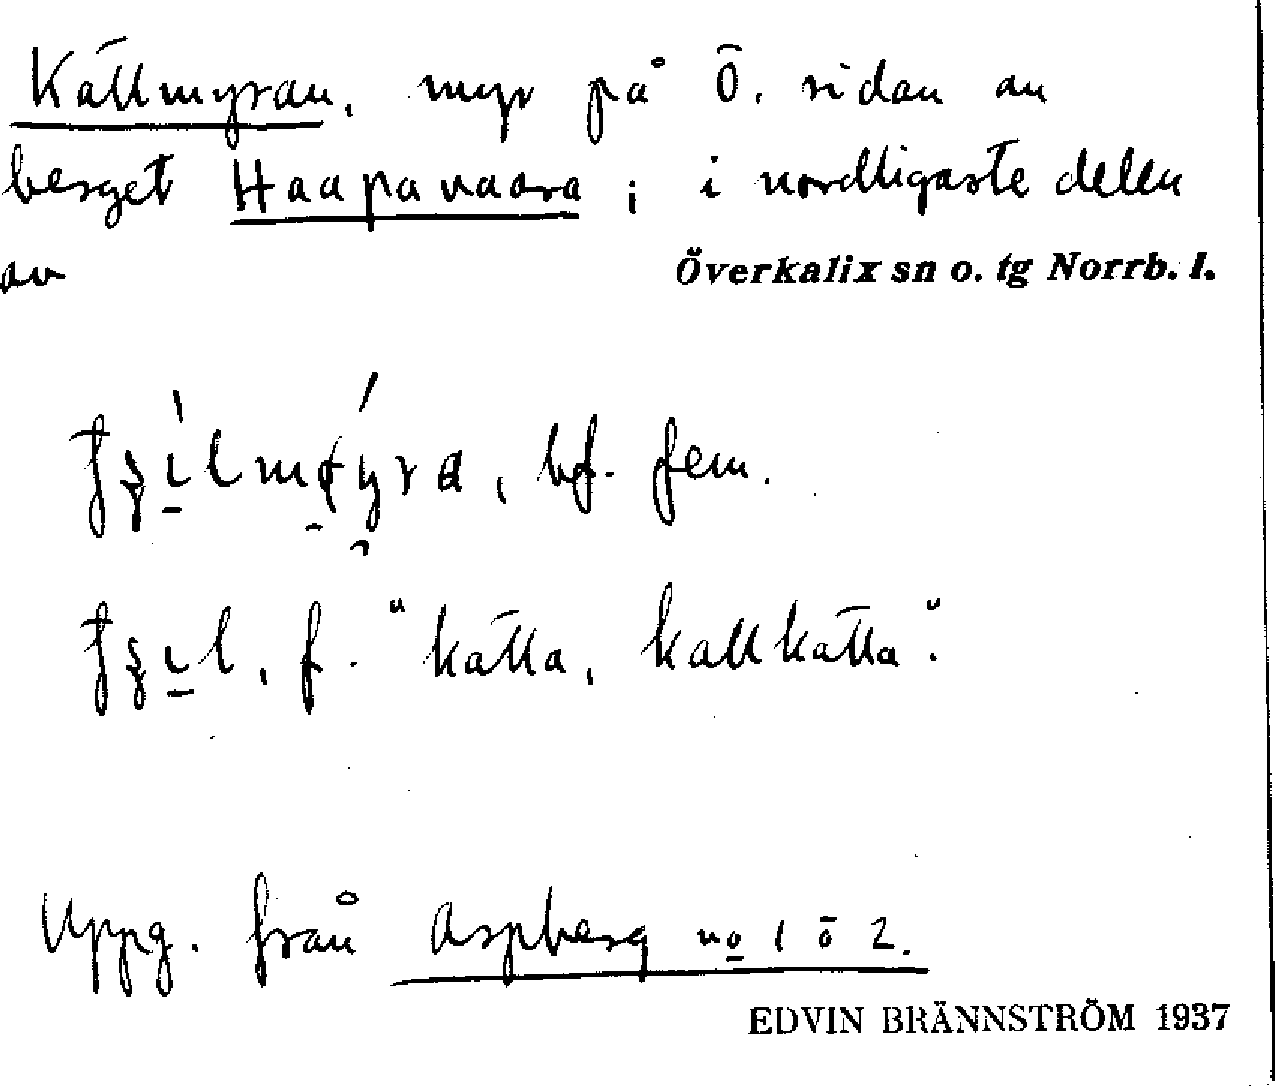 Källmyran, myr på Ö. sidan av
berget Haapavaara, i nordligaste delen
av Överkalix sn o. tg Norrb. l.
bf. fem.
f. "källa, kallkälla".
Uppg. från Aspberg no 1 o 2.
EDVIN BRÄNNSTRÖM 1937